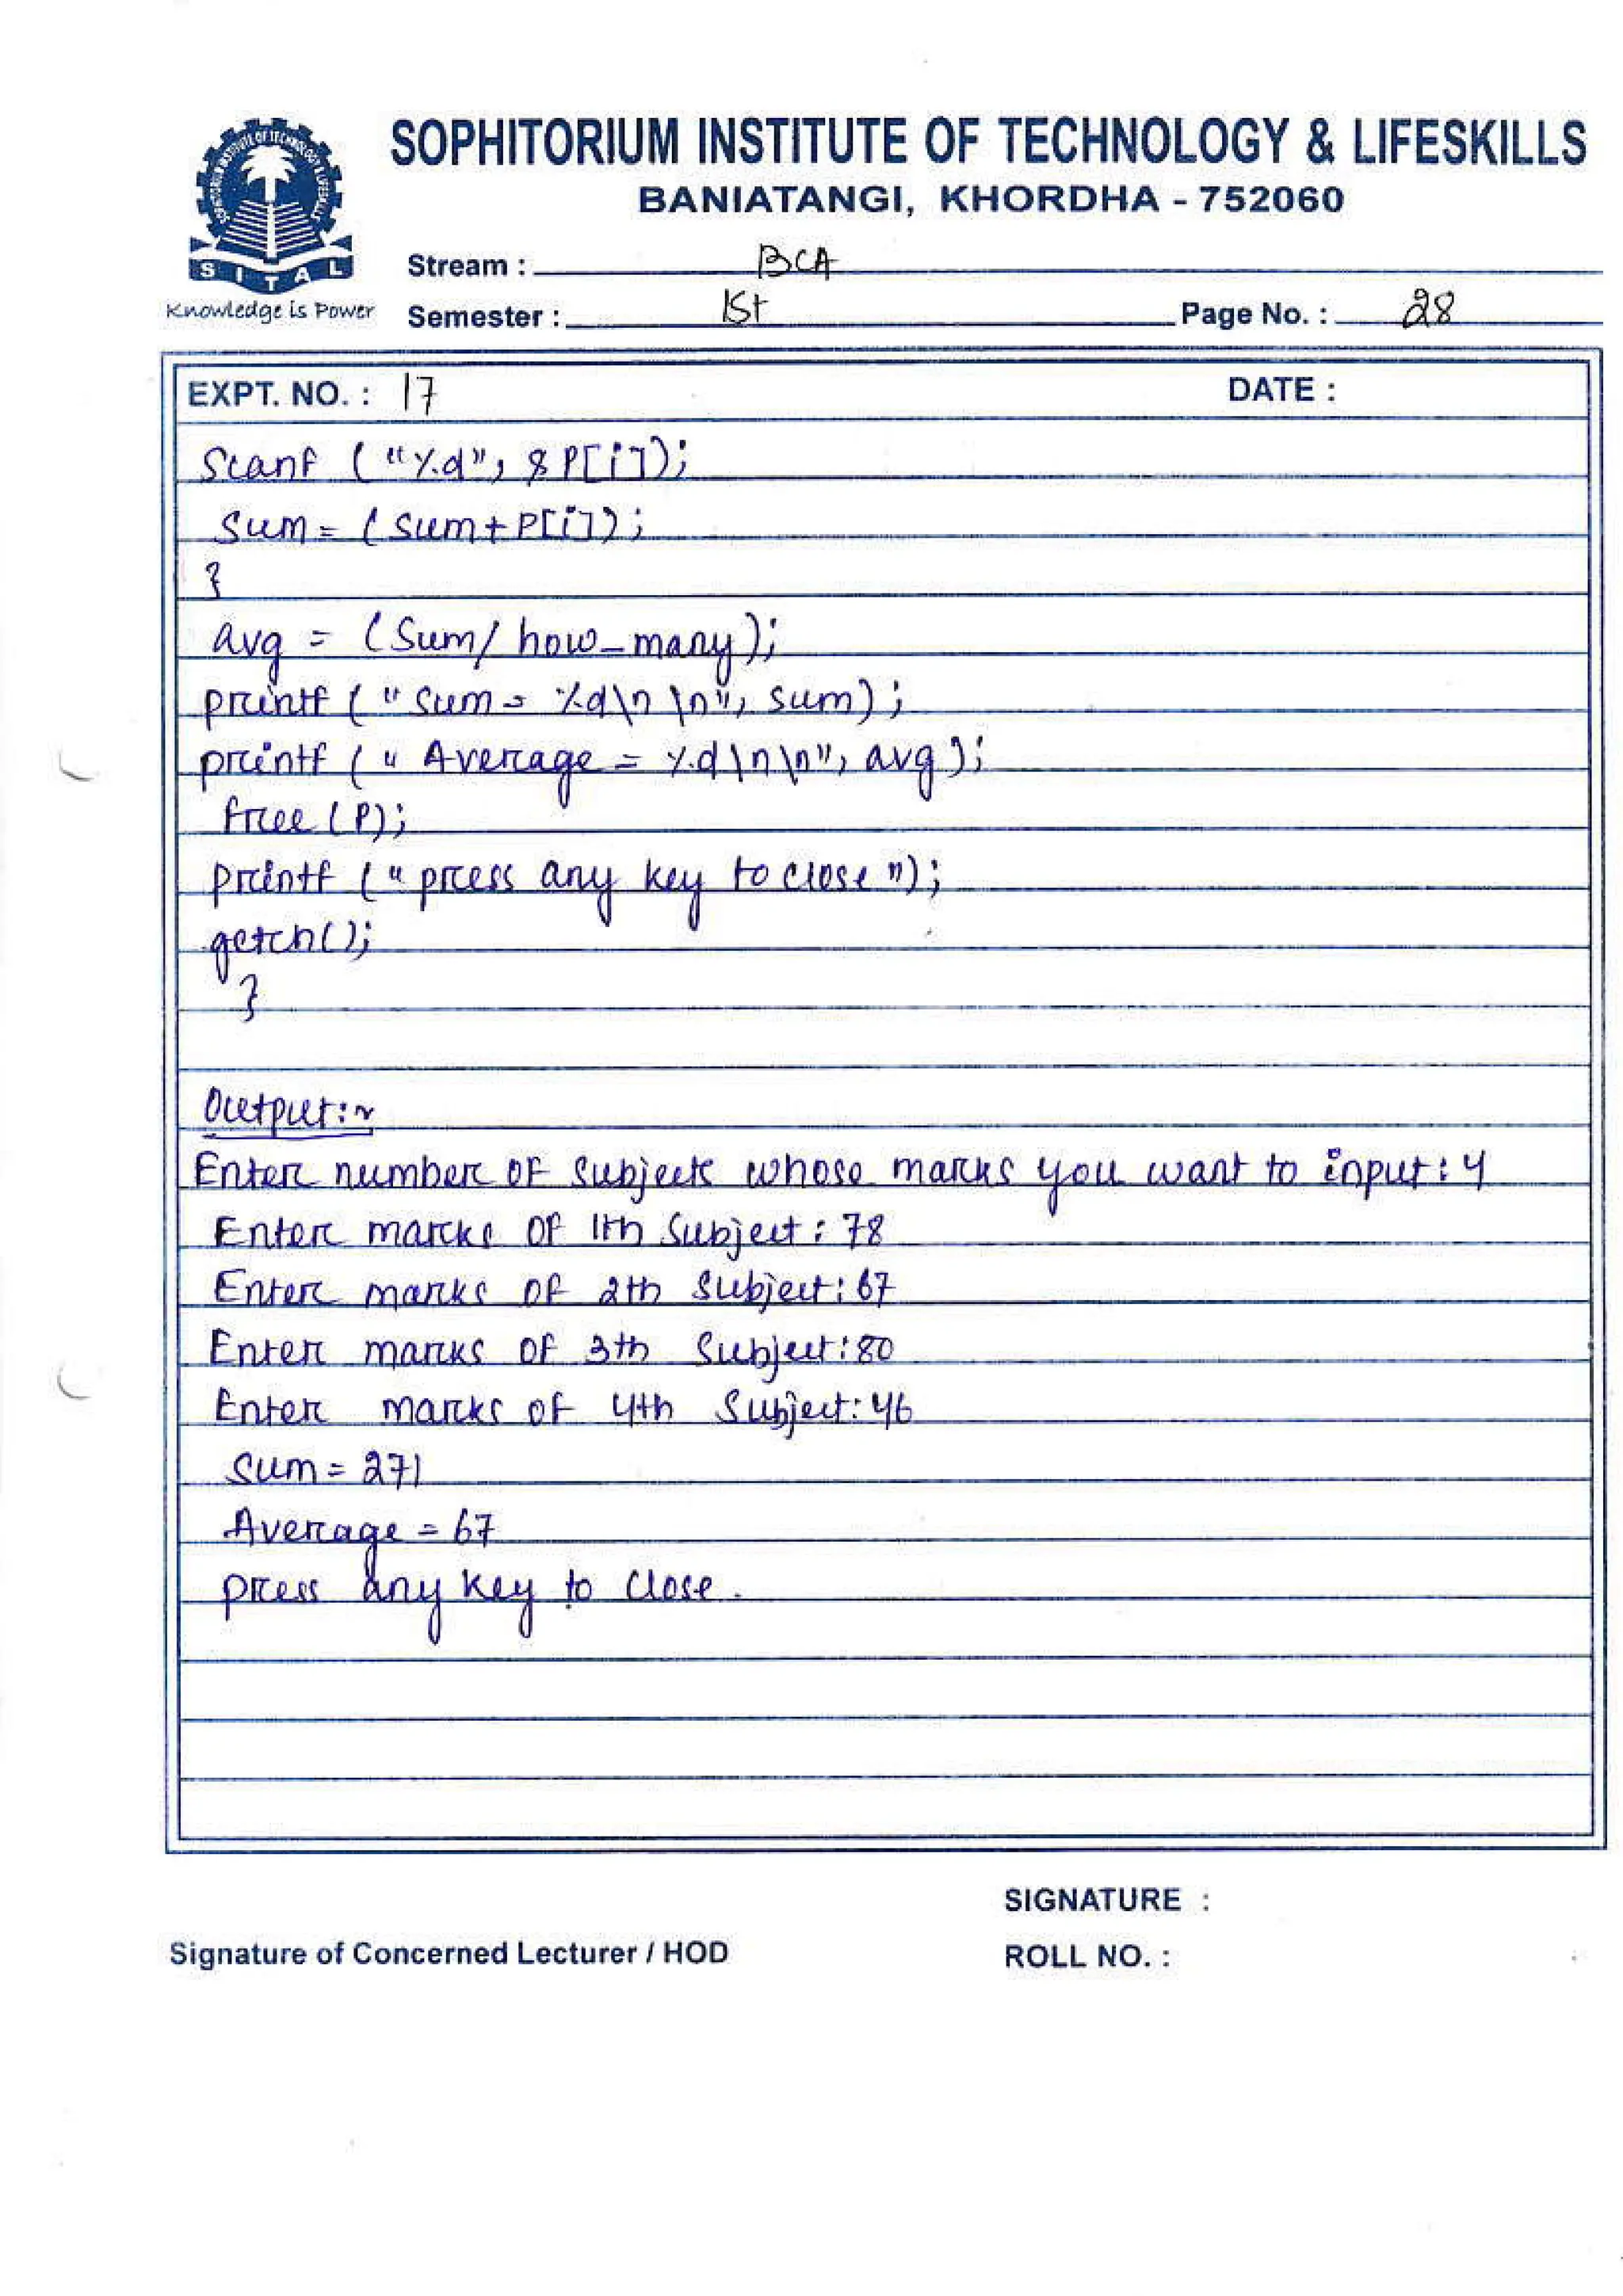 SOPHITORIUM INSTITUTE OF TECHNOLOGY & LIFESKILLS
BANIATANGI, KHORDHA - 752060
SITAL
Knowledge is Power
Stream : BCA
Semester : 1st Page No. : 28
EXPT. NO. : 17 DATE :
Scanf ("%d", &P[i]);
Sum = (Sum+P[i]);
}
avg = (Sum/how_many);
printf ("Sum = %d\n\n", sum);
printf ("Average = %d\n\n", avg);
free (P);
printf ("press any key to close");
getch();
}
Output:~
Enter number of subjects whose marks you want to input: 4
Enter marks of 1th Subject: 78
Enter marks of 2th Subject: 67
Enter marks of 3th Subject: 80
Enter marks of 4th Subject: 46
Sum = 271
Average = 67
press any key to close.
SIGNATURE :
Signature of Concerned Lecturer / HOD ROLL NO. :